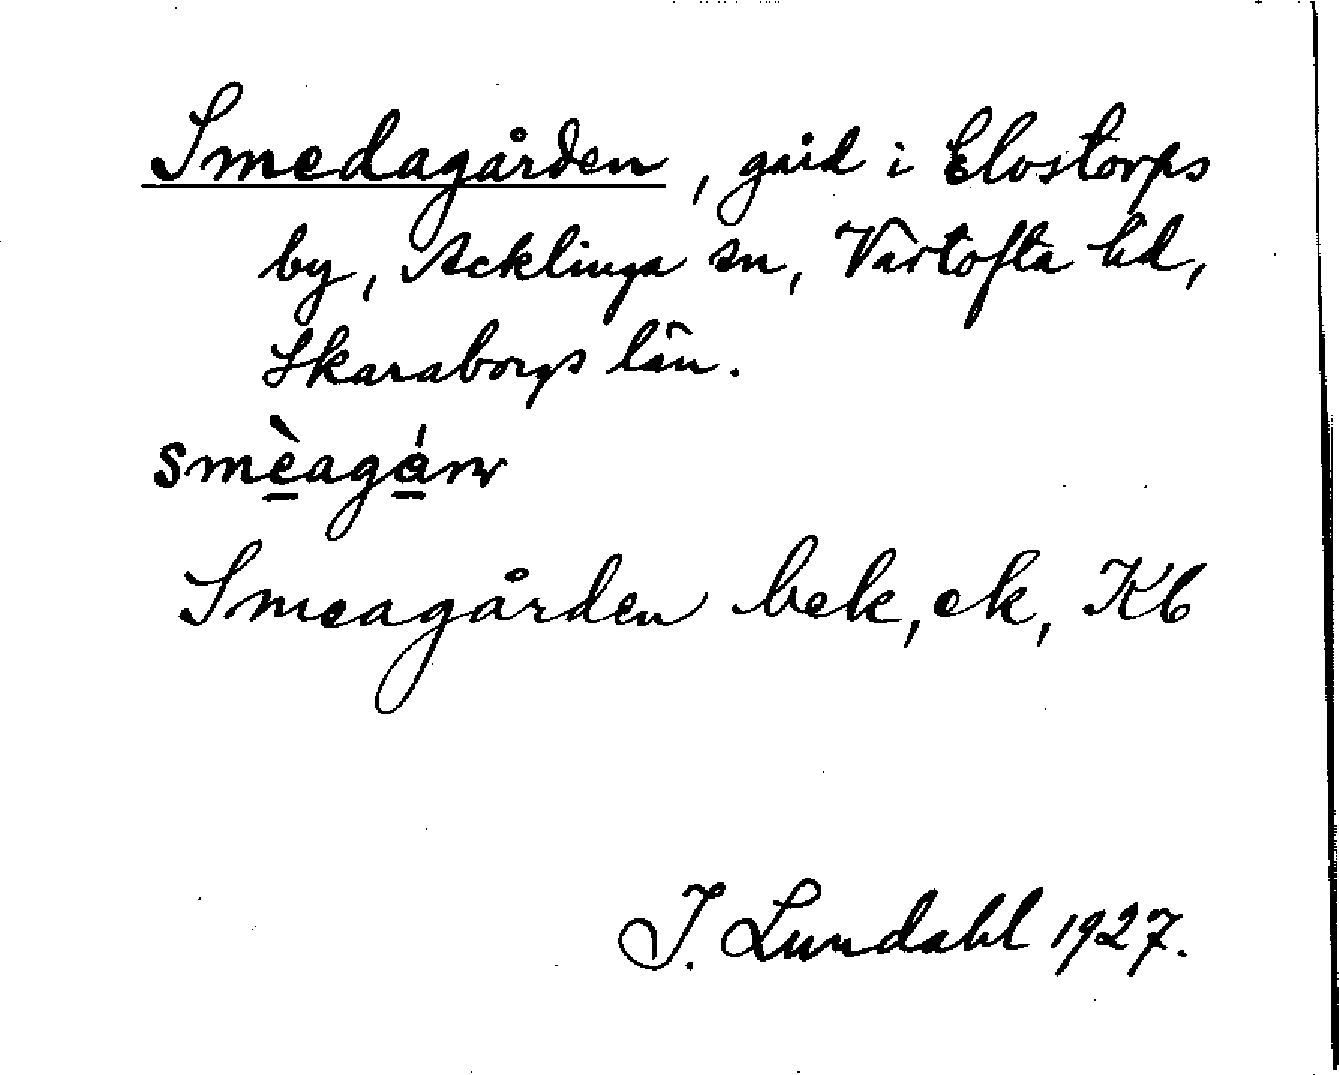 Smedagården, gård i Elostorps
by, Acklinga sn, Vartofta hd,
Skaraborgs län.
Smeagården bek, ek, Kb
J. Lundahl 1927.